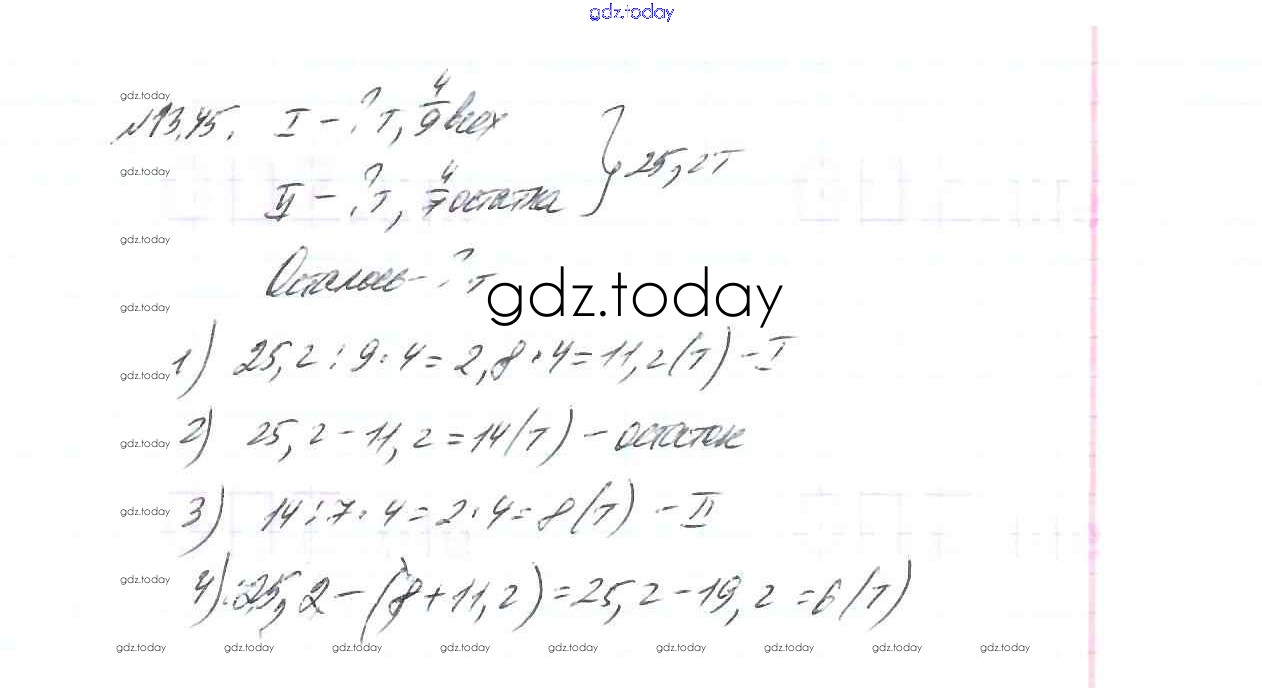 gdz.today
gdz.today
№13.45. I – ? т, 4/9 всех
gdz.today
II – ? т, 4/7 остатка } 25,2 т
gdz.today
Осталось – ? т
gdz.today
gdz.today
1) 25,2 : 9 · 4 = 2,8 · 4 = 11,2 (т) – I
gdz.today
2) 25,2 – 11,2 = 14 (т) – остаток
gdz.today
3) 14 : 7 · 4 = 2 · 4 = 8 (т) – II
gdz.today
4) 25,2 – (8 + 11,2) = 25,2 – 19,2 = 6 (т)
gdz.today
gdz.today gdz.today gdz.today gdz.today gdz.today gdz.today gdz.today gdz.today gdz.today